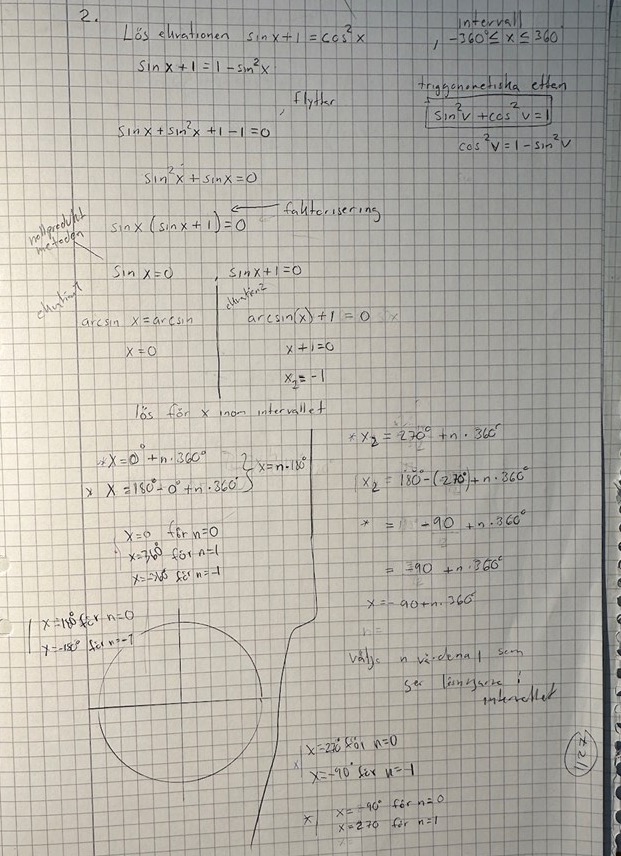 2.
Lös ekvationen sinx+1=cos²x
intervall
, -360°≤ x ≤ 360°
sinx+1=1-sin²x
, flyttar
sinx+sin²x+1-1=0
trigonometiska ettan
sin²v+cos²v=1
cos²v=1-sin²v
sin²x+sinx=0
sinx(sinx+1)=0
faktorisering
nollprodukt
metoden
sinx=0 , sinx+1=0
ekvation1
arcsin x=arcsin
x=0
ekvation2
arcsin(x)+1=0
x+1=0
x₂=-1
lös för x inom intervallet
* x=0°+n·360°
* x=180°-0°+n·360°
} x=n·180°
x=0 för n=0
x=360° för n=1
x=-360° för n=-1
x=180° för n=0
x=-180° för n=-1
* x₂=270°+n·360°
x₂=180°-(270°)+n·360°
* = -90+n·360°
= -90+n·360°
x=-90+n·360°
välje n värdena som
ger lösningarna i
intervallet
x=270° för n=0
x=-90° för n=-1
* x=-90° för n=0
x=270 för n=1